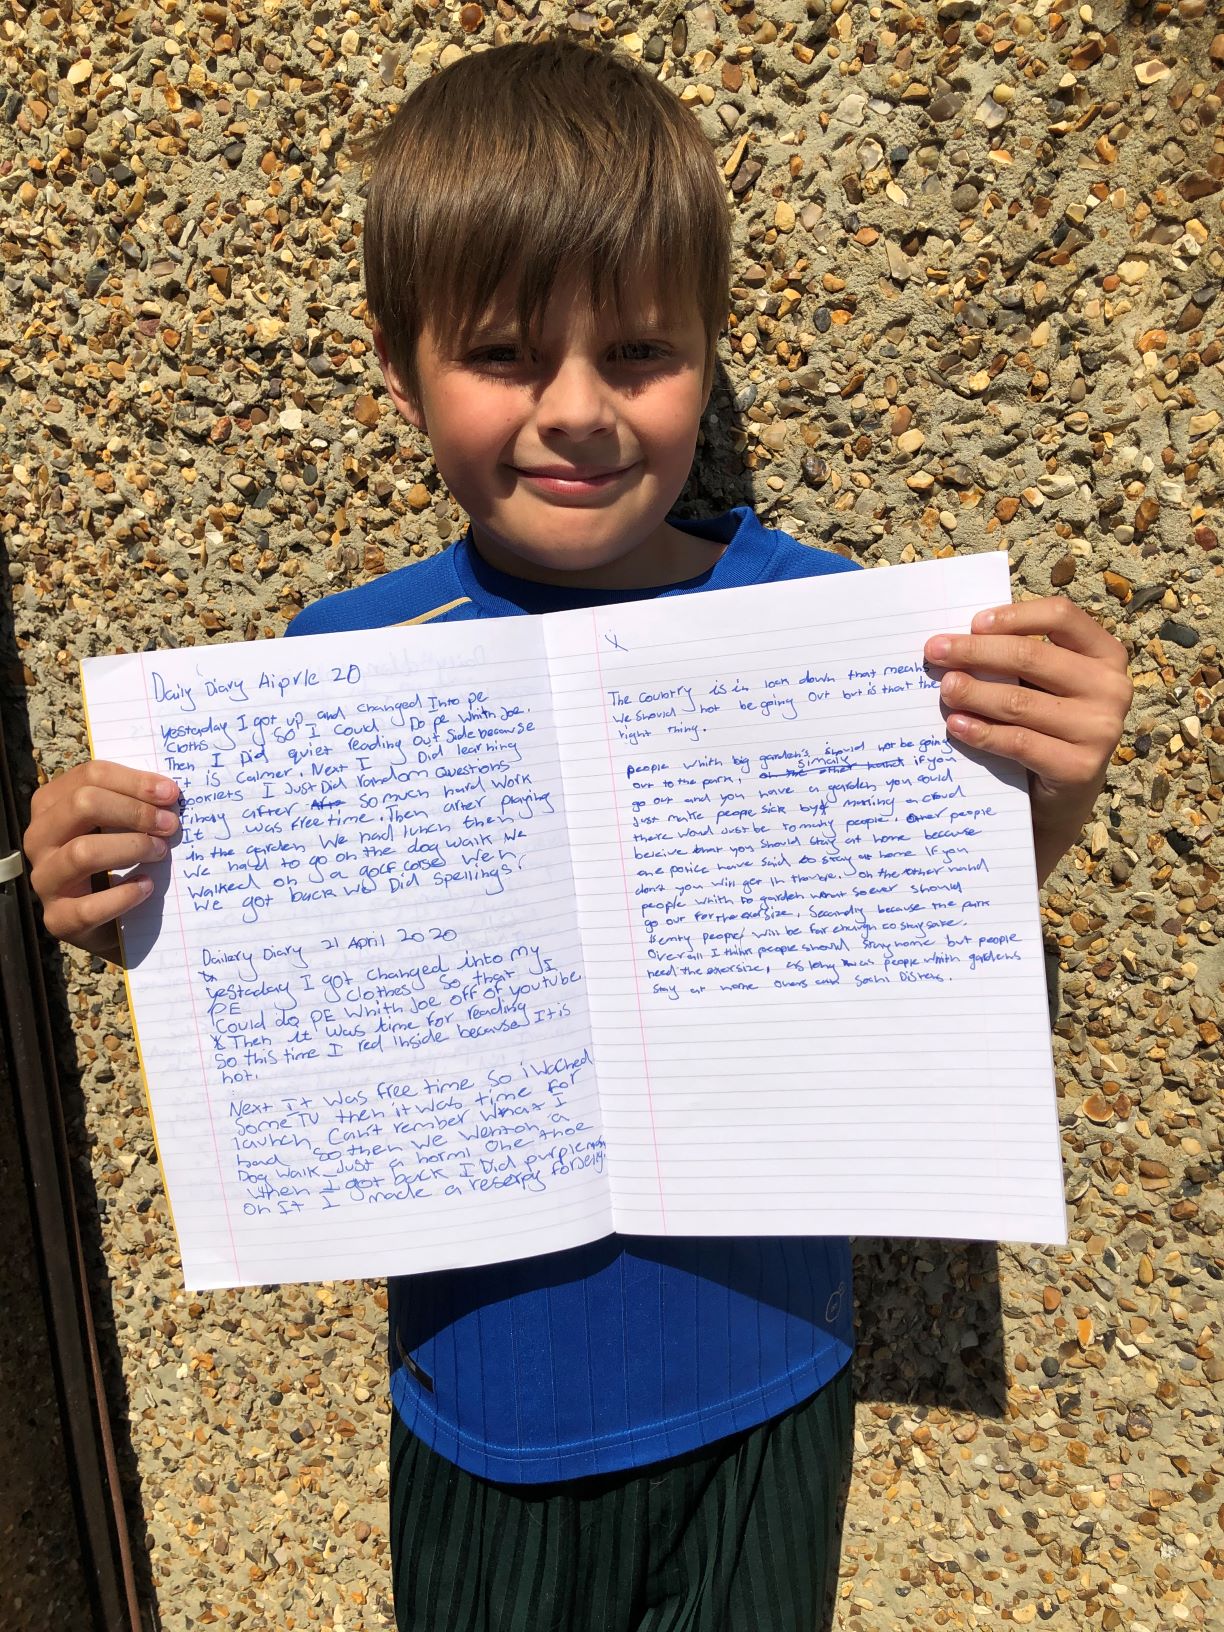 Daily Diary Aiprle 20
Yestaday I got up and changed Into pe
Cloths so I Could Do pe whith Joe.
Then I Did quiet reading out side because
It is calmer. Next I Did learning
booklets I Just Did random Questions
after so much hard work
It was free time. Then after playing
in the garden we had lunch then
we had to go on the dog walk we
walked on a golf corse weh
we got back we Did spellings.
Dailery Diary 21 April 2020
Yestaday I got changed into my
PE clothes so that I
Could do PE whith Joe off of youtube
Then it was time for reading
So this time I red inside because It is
hot.
Next It was free time so i wached
some TV then it was time for
launch Can't rember what I
had so then we went on a
Dog walk Just a norml One thoe
when I got back I Did purple mash
on it I made a reserpy for Jelly.
The Country is in lock down that means
we should not be going out but is that the
right thing.
people whith big garden's should not be going
out to the park, simaly if you
go out and you have a garden you could
Just make people sick by making a croud
there woud Just be to many people. Other people
beleive that you should stay at home because
the police have said to stay at home If you
don't you will get in trouble. On the other hand
people whith no garden what so ever should
go out for the exersize, Secondly because the park
is emty people will be far enough to stay safe.
Over all I think people should stay home but people
need the exersize, as long as people whith gardens
stay at home others can Soshl Distens.